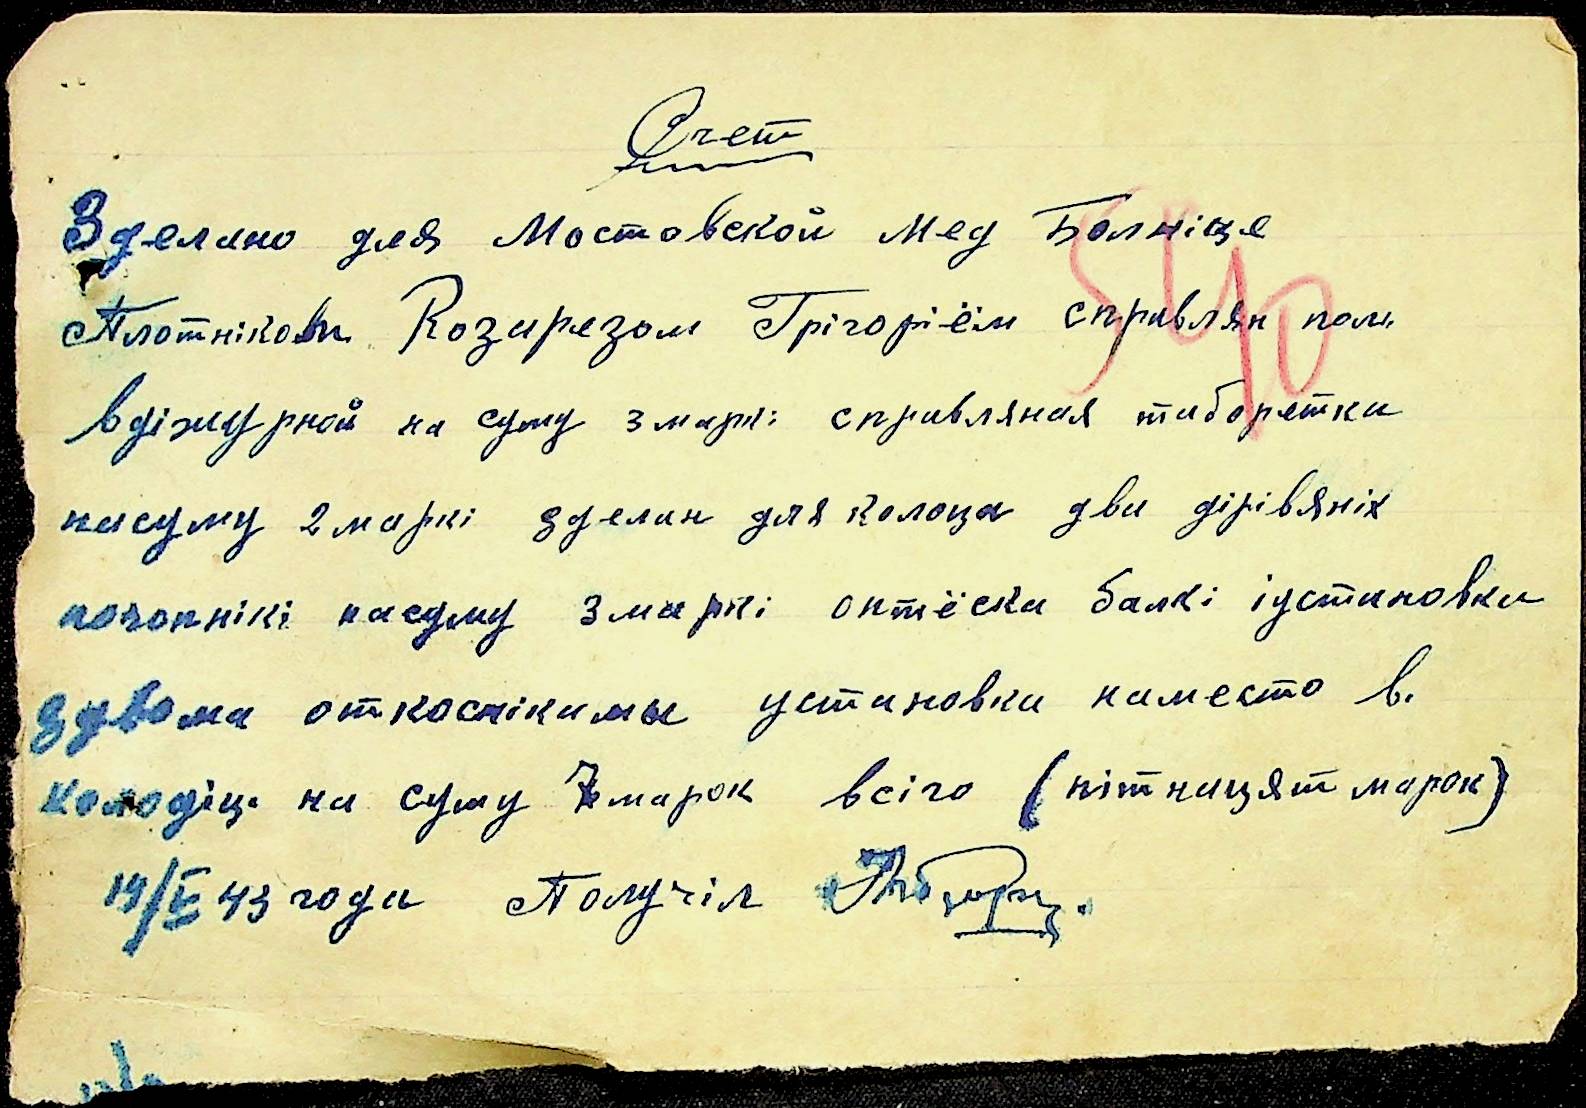 Счет
Зделано для Мостовской Мед Болніце
Плотніком Козирезом Грігоріём справлян пол.
вдіжурной на суму 3 маркі справляная таборетка
насуму 2 маркі зделан для колоца два дірівяніх
почопнікі насуму 3 маркі оптёска балкі іустановка
здвома откоснікамы установка наместо в.
колодіц. на суму 7 марок всіго (пітнацят марок)
14/V 43 года Получіл